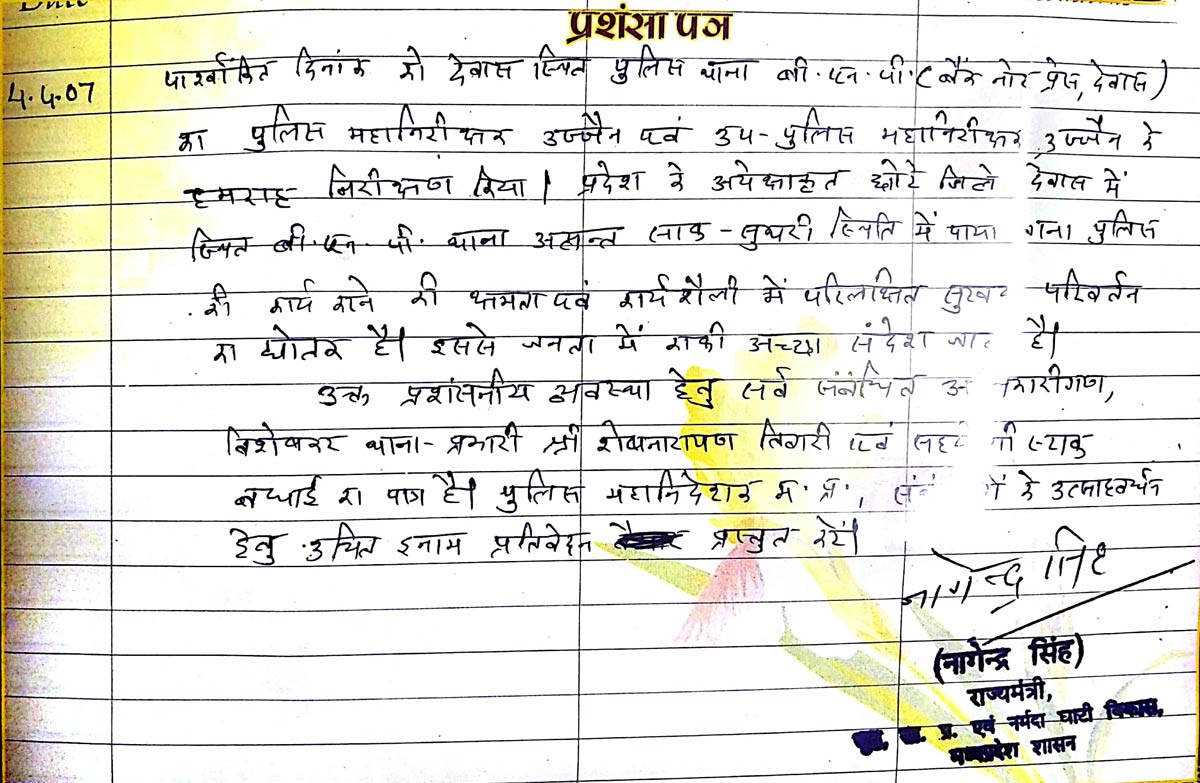 प्रशंसा पत्र
4.4.07
पार्श्वांकित दिनांक को देवास स्थित पुलिस थाना बी.एन.पी. (बैंक नोट प्रेस, देवास)
का पुलिस महानिरीक्षक उज्जैन एवं उप-पुलिस महानिरीक्षक, उज्जैन के
हमराह निरीक्षण किया। प्रदेश के अपेक्षाकृत छोटे जिले देवास में
स्थित बी.एन.पी. थाना अत्यन्त साफ-सुथरी स्थिति में पाया गया पुलिस
की कार्य करने की क्षमता एवं कार्य शैली में परिलक्षित सुखद परिवर्तन
का द्योतक है। इससे जनता में काफी अच्छा संदेश है।
उक्त प्रशंसनीय व्यवस्था हेतु सर्व संबंधित
विशेषकर थाना-प्रभारी श्री शेषनारायण तिवारी एवं स्टाफ
बधाई का पात्र है। पुलिस महानिदेशक म.प्र., के उत्साहवर्धन
हेतु उचित इनाम प्रतिवेदन प्रस्तुत करें।
नागेन्द्र सिंह
(नागेन्द्र सिंह)
राज्यमंत्री,
प्र. एवं नर्मदा घाटी विकास,
मध्यप्रदेश शासन